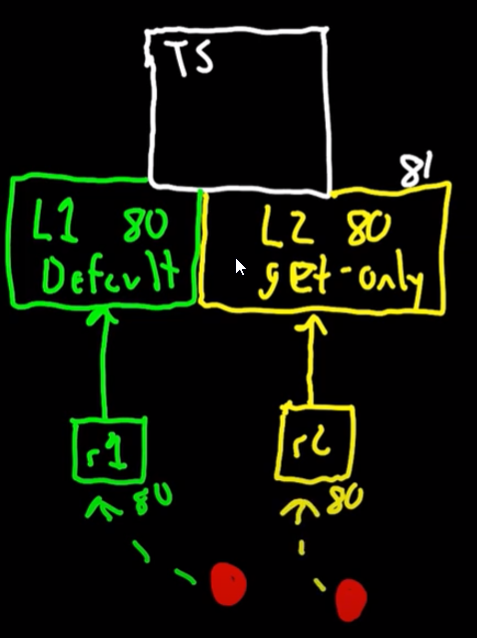 TS
81
L1 80
Default
L2 80
get-only
r1
r2
80
80